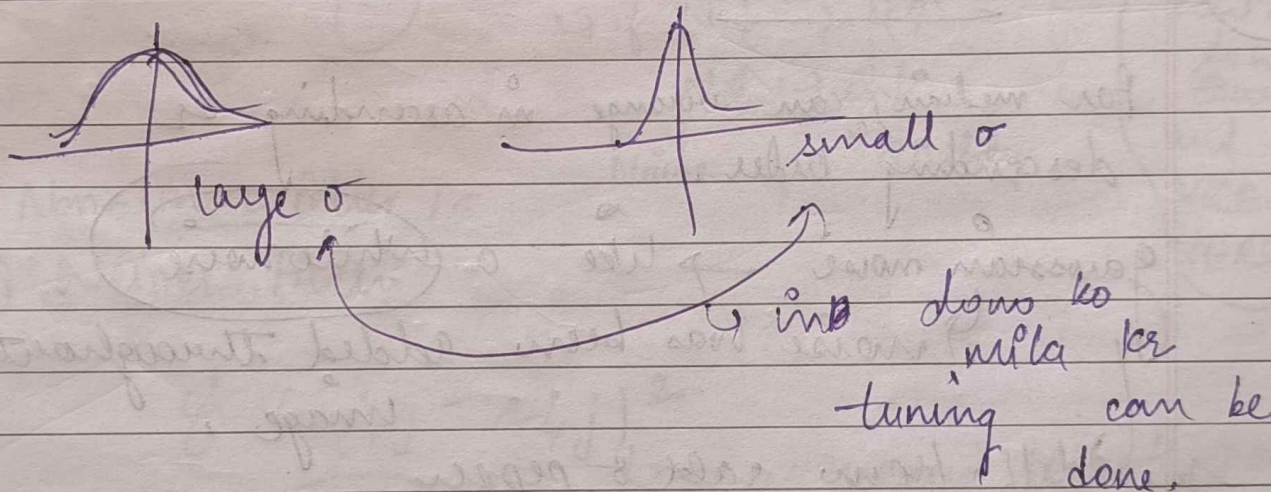 large σ
small σ
in dono ko
mila kr
tuning can be
done.